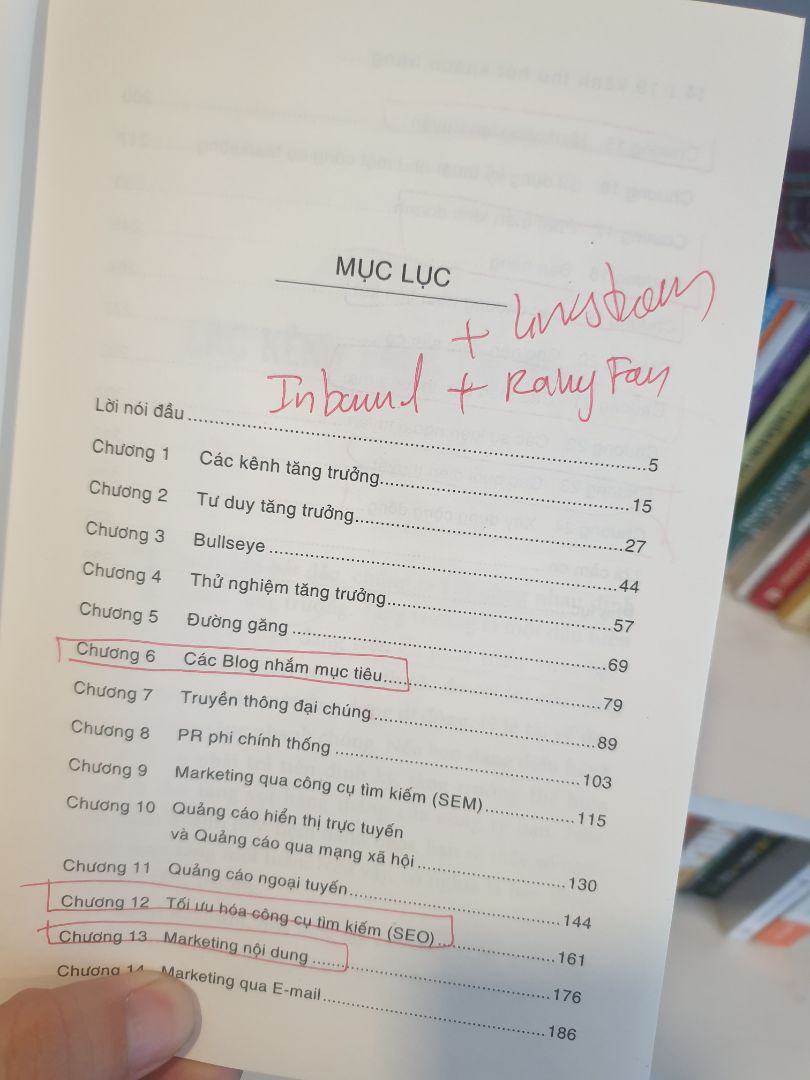 MỤC LỤC
+
Inbound + Raving Fan
Lời nói đầu ... 5
Chương 1 Các kênh tăng trưởng ... 15
Chương 2 Tư duy tăng trưởng ... 27
Chương 3 Bullseye ... 44
Chương 4 Thử nghiệm tăng trưởng ... 57
Chương 5 Đường găng ... 69
Chương 6 Các Blog nhắm mục tiêu ... 79
Chương 7 Truyền thông đại chúng ... 89
Chương 8 PR phi chính thống ... 103
Chương 9 Marketing qua công cụ tìm kiếm (SEM) ... 115
Chương 10 Quảng cáo hiển thị trực tuyến
và Quảng cáo qua mạng xã hội ... 130
Chương 11 Quảng cáo ngoại tuyến ... 144
Chương 12 Tối ưu hóa công cụ tìm kiếm (SEO) ... 161
Chương 13 Marketing nội dung ... 176
Chương 14 Marketing qua E-mail ... 186